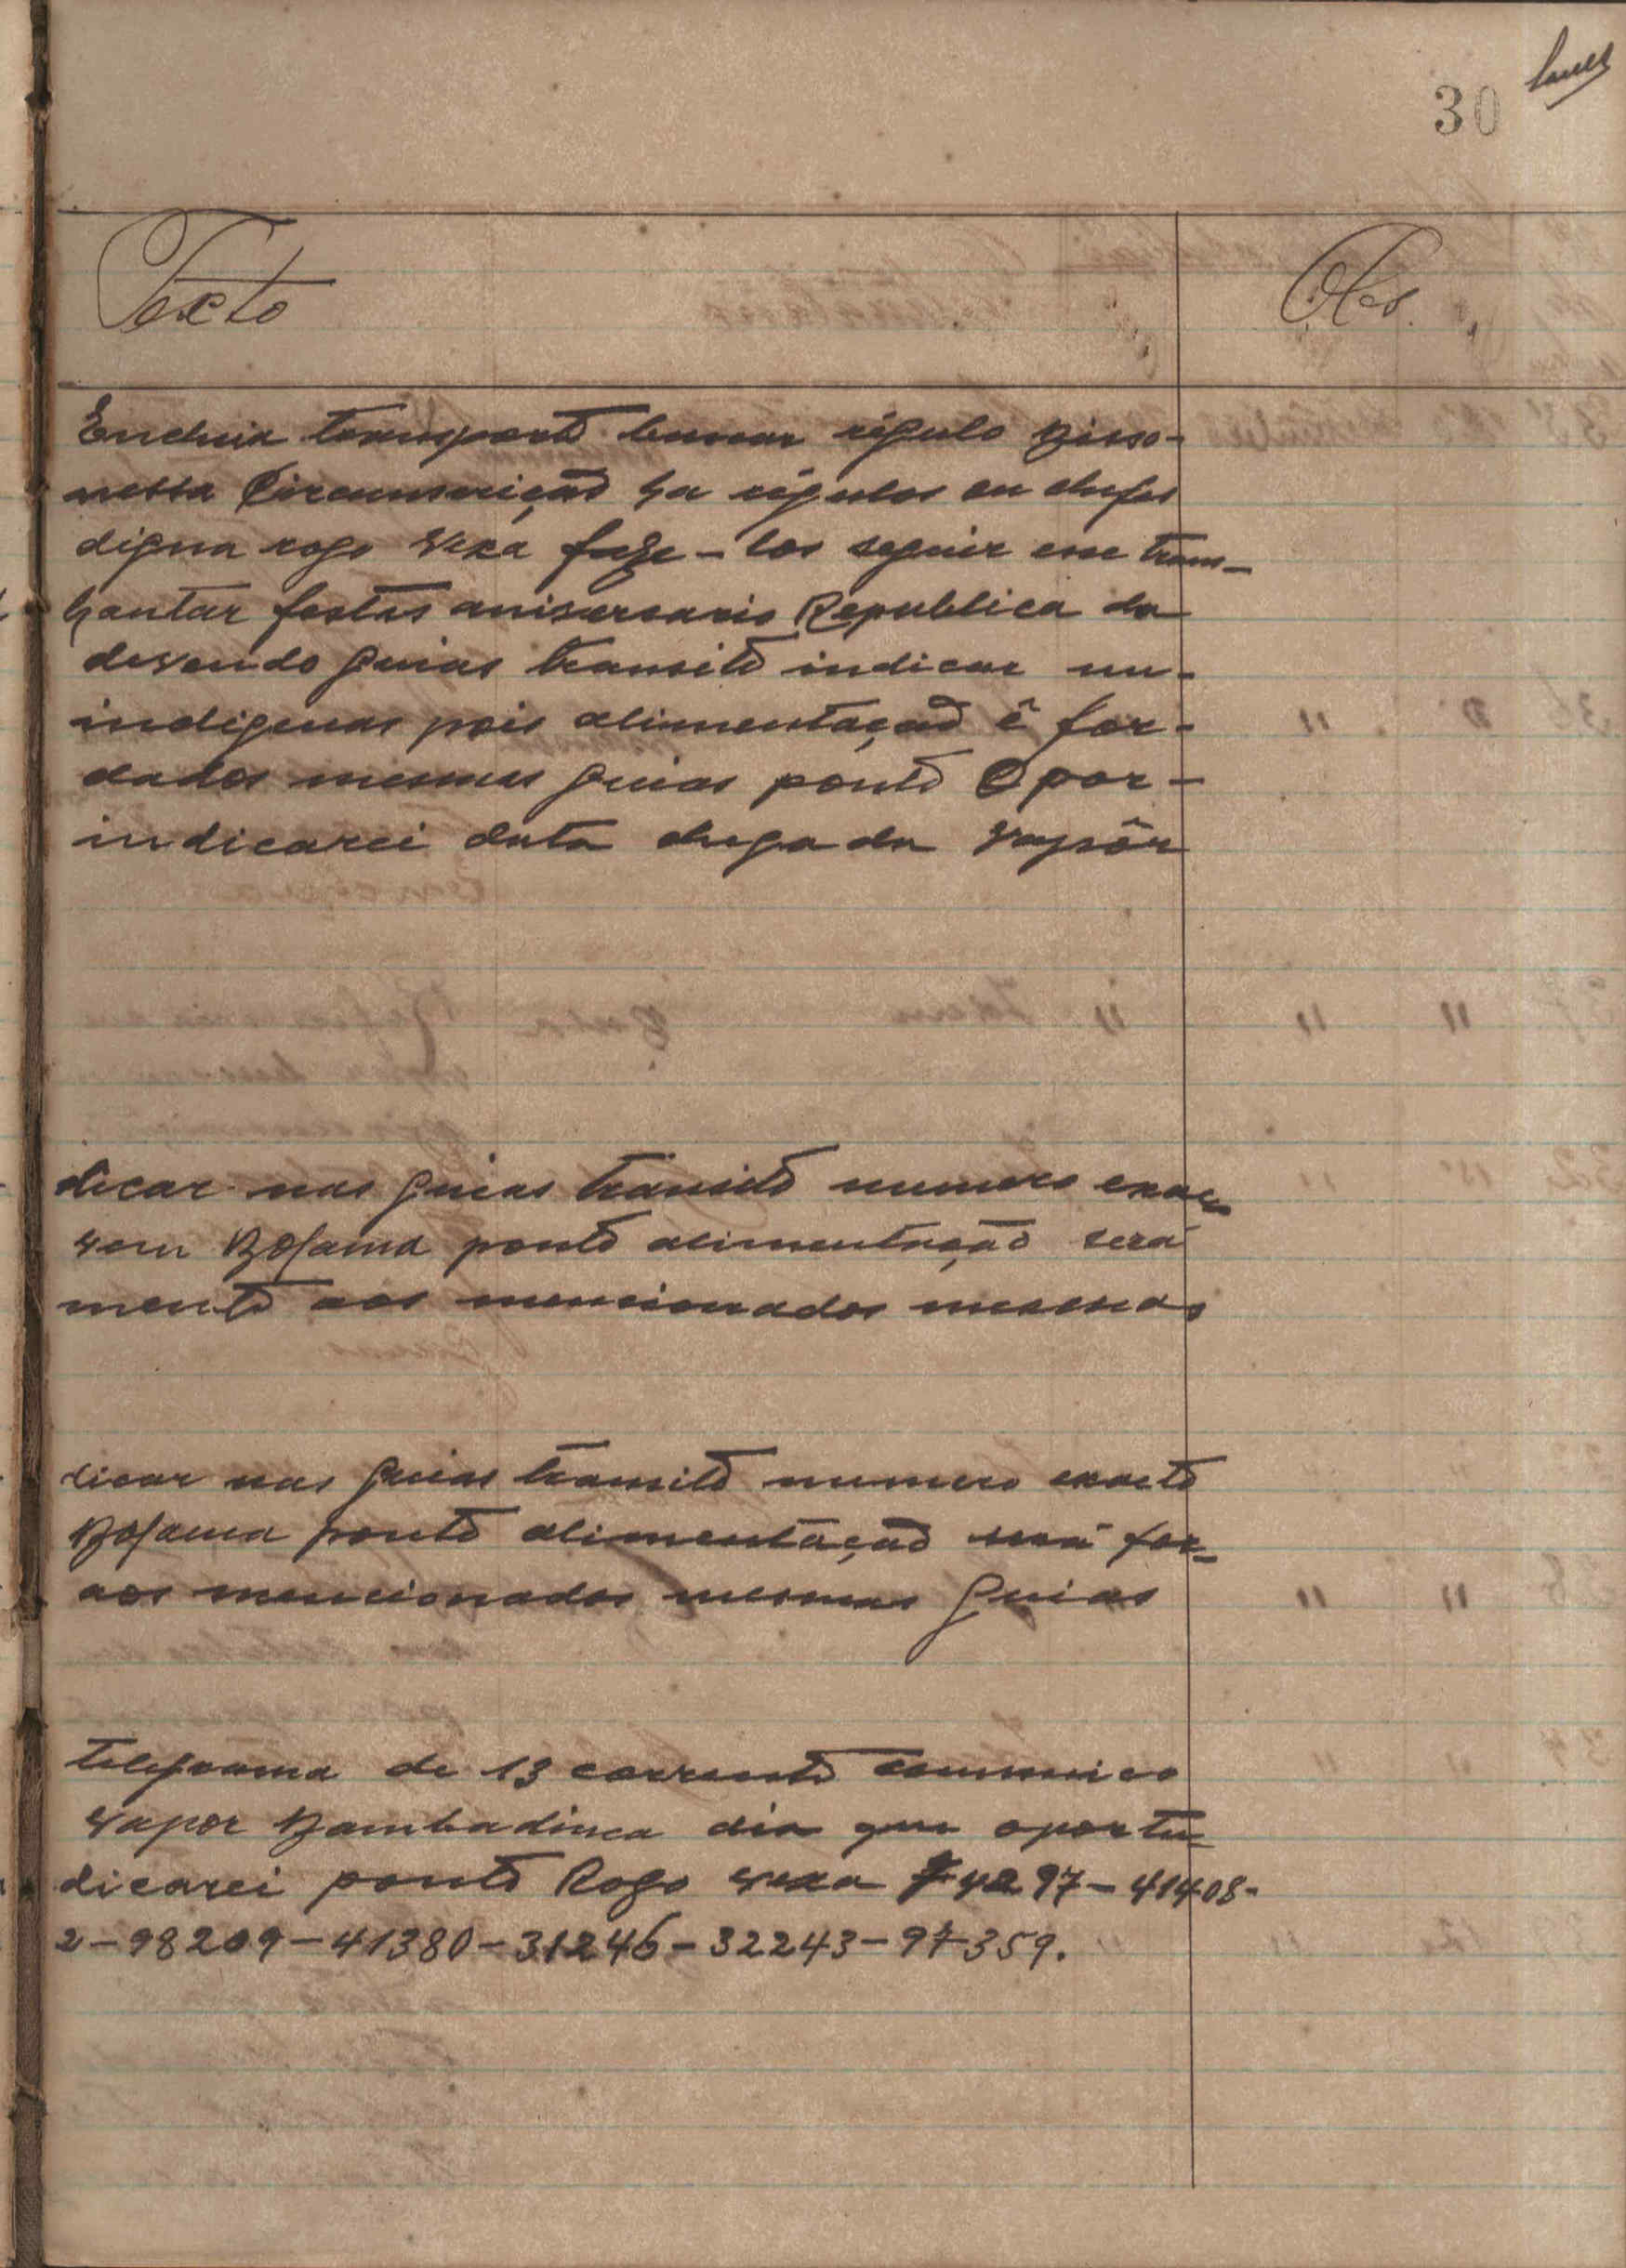 30
Texto
Obs.
Encheia transporte buscar régulo Bisso-
nessa Circunscrição ha régulos ou chefes
digna rogo Vexa faze-los seguir esse trans-
hantar festas aniversario Republica da
devendo guias transito indicar nu-
indigenas pois alimentação é for-
dados mesmas guias ponto Opor-
indicarei data chegada vapôr
dicar nas guias transito numero exac
vem Bolama ponto alimentação será
mente aos mencionados mesmas
dicar nas guias transito numero exacto
Bolama ponto alimentação será for-
aos mencionados mesmas guias
telegrama de 13 corrente comunico
vapor Bambadinca dia que oportu-
dicarei ponto Rogo vexa 74297-41408-
2-98209-41380-31246-32243-97359.